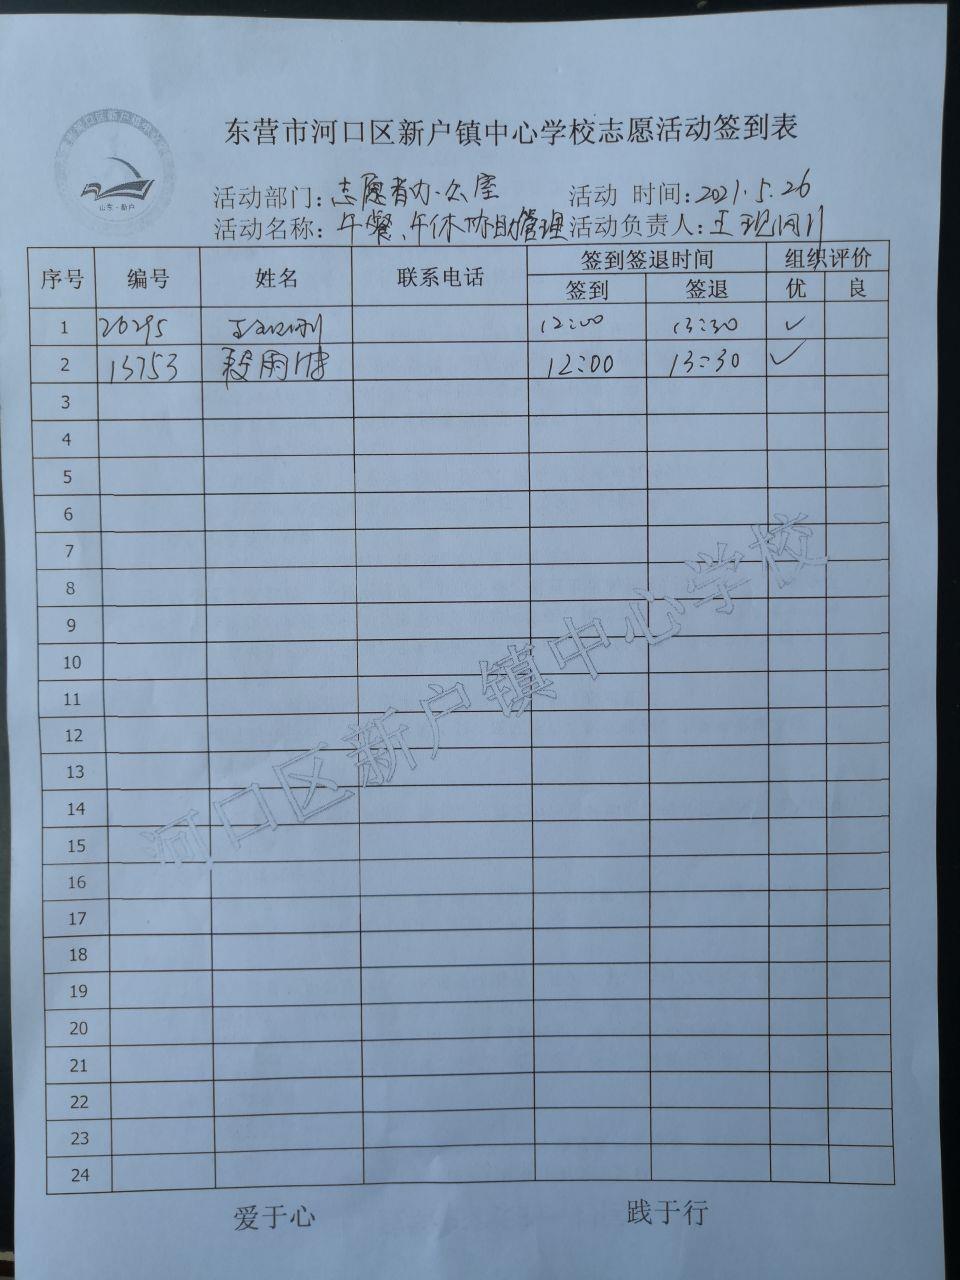 东营市河口区新户镇中心学校志愿活动签到表
山东·新户
活动部门：志愿者办公室 活动 时间：2021.5.26
活动名称：午餐、午休协助管理 活动负责人：王
序号 编号 姓名 联系电话 签到签退时间 组织评价
签到 签退 优 良
1 20295 12:00 13:30 ✓
2 13753 12:00 13:30 ✓
3
4
5
6
7
8
9
10
11
12
13
14
15
16
17
18
19
20
21
22
23
24
河口区新户镇中心学校
爱于心 践于行